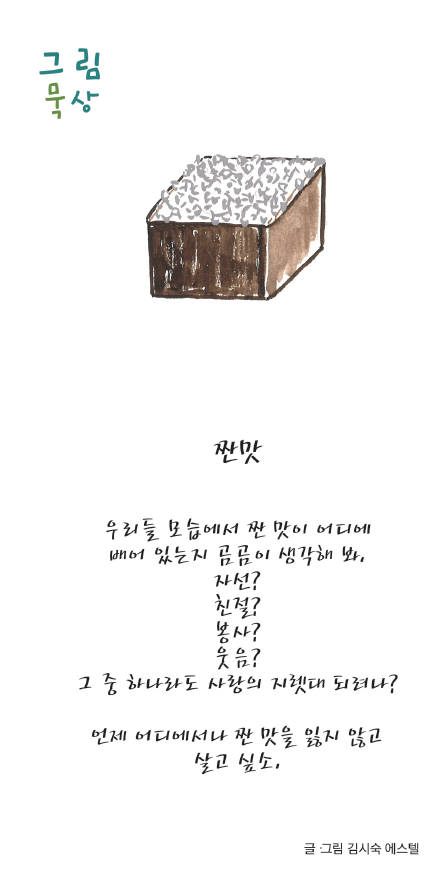 그림
묵상
짠맛
우리들 모습에서 짠 맛이 어디에
배어 있는지 곰곰이 생각해 봐.
자선?
친절?
봉사?
웃음?
그 중 하나라도 사랑의 지렛대 되려나?
언제 어디에서나 짠 맛을 잃지 않고
살고 싶소.
글·그림 김시숙 에스텔